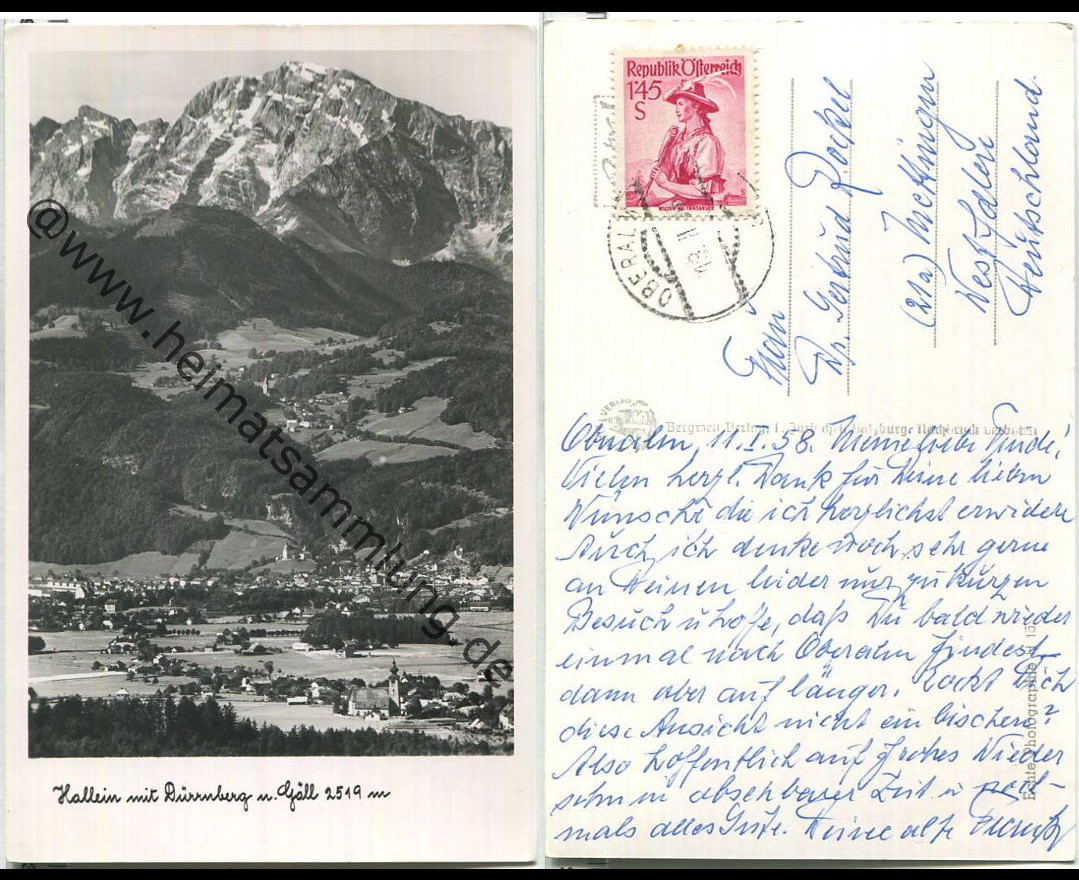 @www.heimatsammlung.de
Hallein mit Dürrnberg u. Göll 2519 m
Republik Österreich
1'45
S
OBERALM
Frau
Dr. Gertrud Rockel
(21a) Mettingen
Westfalen
Deutschland.
VERLAG
Oberalm, 11.I.58. Meine liebe Trude!
Vielen herzl. Dank für Deine lieben
Wünsche die ich herzlichst erwidere
Auch ich denke noch sehr gerne
an Deinen leider nur zu kurzen
Besuch u hoffe, daß Du bald wieder
einmal nach Oberalm findest,
dann aber auf länger. Lockt Dich
diese Ansicht nicht ein bischen?
Also hoffentlich auf frohes Wieder
sehn in absehbarer Zeit u noch-
mals alles Gute. Deine alte
Echte Photographie